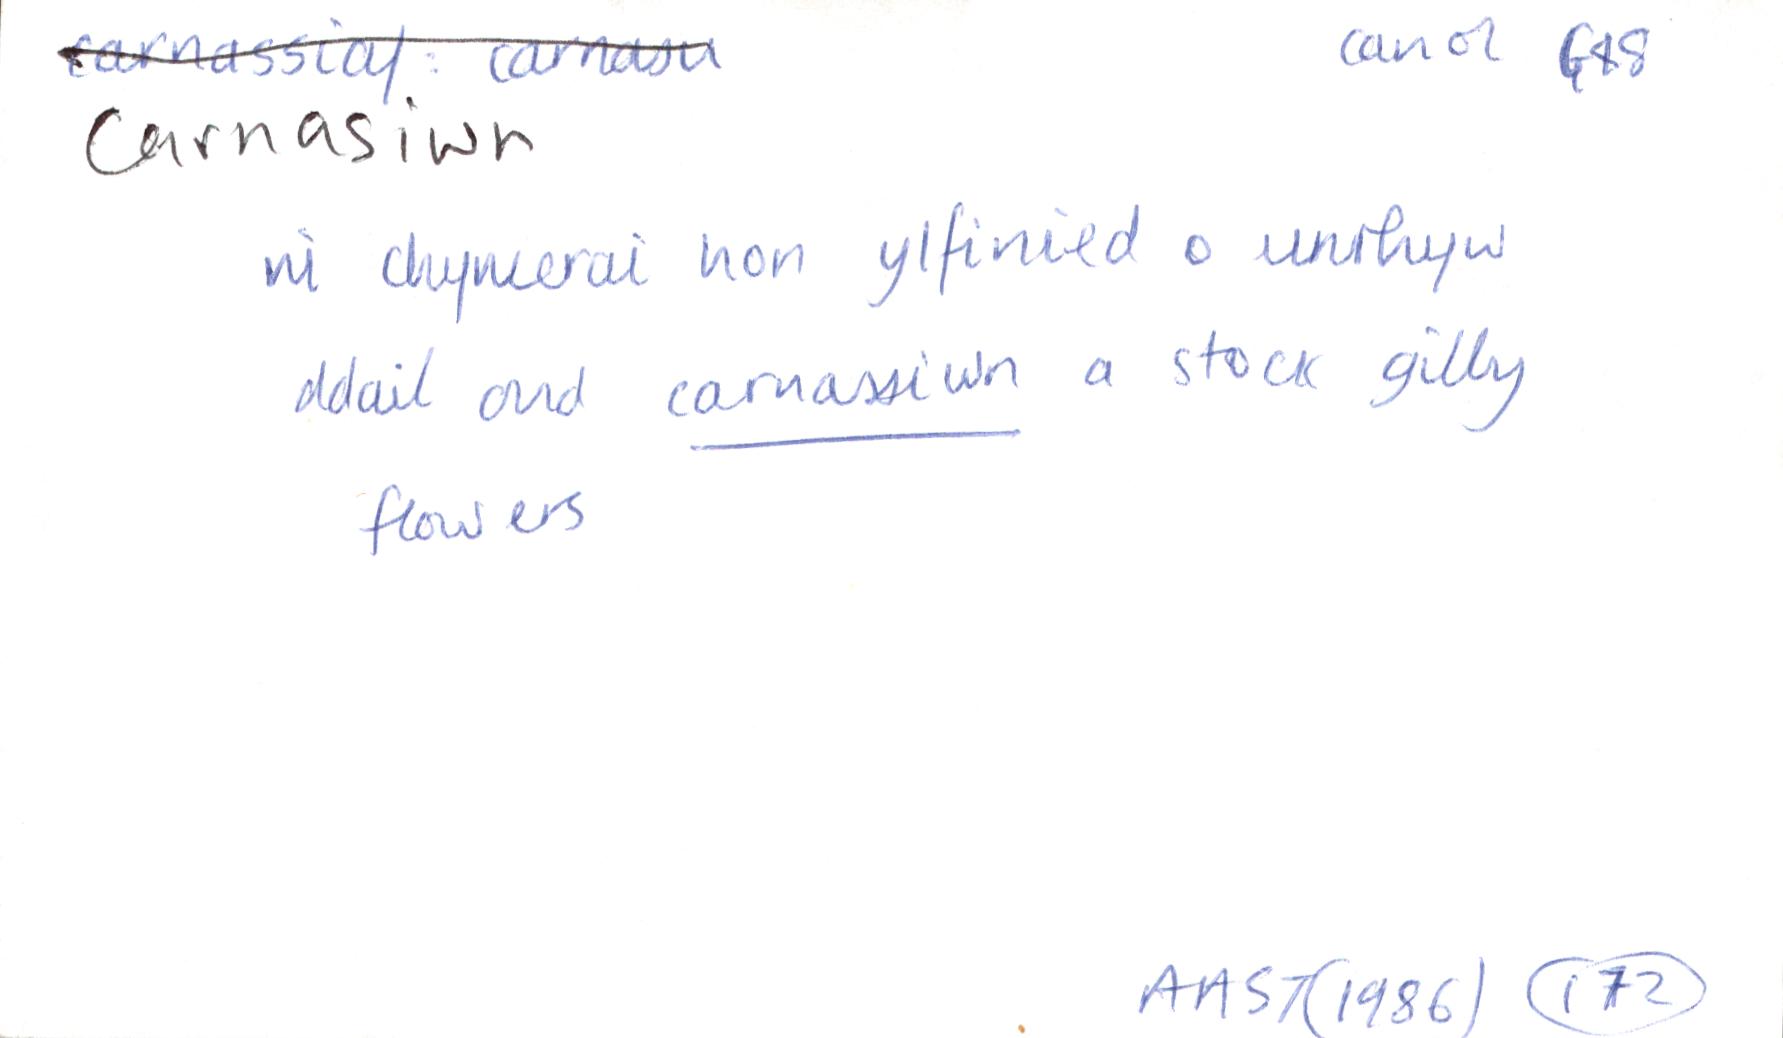 carnassiaf: carnasu canol G18
Carnasiwn
ni chymerai hon ylfinied o unrhyw
ddail ond carnassiwn a stock gilly
flowers
AAST (1986) 172